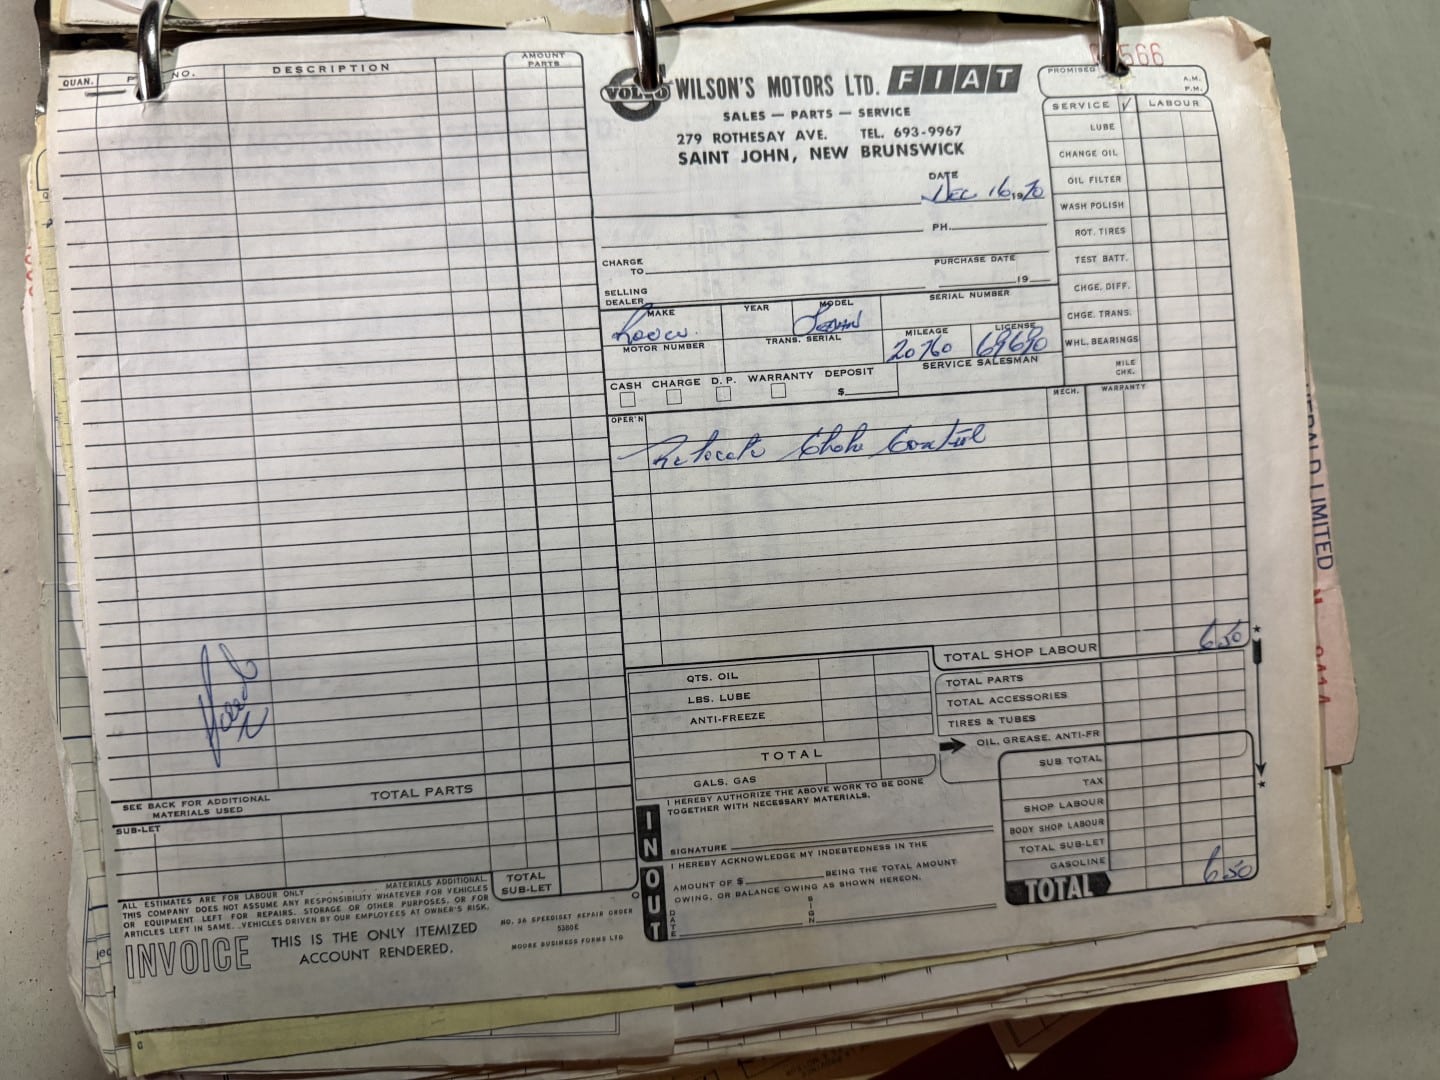 QUAN.
NO.
DESCRIPTION
AMOUNT
PARTS
SEE BACK FOR ADDITIONAL
MATERIALS USED
TOTAL PARTS
SUB-LET
TOTAL
SUB-LET
ALL ESTIMATES ARE FOR LABOUR ONLY . . . . . . . MATERIALS ADDITIONAL.
THIS COMPANY DOES NOT ASSUME ANY RESPONSIBILITY WHATEVER FOR VEHICLES
OR EQUIPMENT LEFT FOR REPAIRS, STORAGE OR OTHER PURPOSES, OR FOR
ARTICLES LEFT IN SAME. VEHICLES DRIVEN BY OUR EMPLOYEES AT OWNER'S RISK.
INVOICE
THIS IS THE ONLY ITEMIZED
ACCOUNT RENDERED.
NO. 3A SPEEDISET REPAIR ORDER
5380E
MOORE BUSINESS FORMS LTD
VOLVO WILSON'S MOTORS LTD. FIAT
SALES — PARTS — SERVICE
279 ROTHESAY AVE. TEL. 693-9967
SAINT JOHN, NEW BRUNSWICK
566
PROMISED
A.M.
P.M.
DATE
Dec 16, 1970
PH.
CHARGE
TO
PURCHASE DATE
19
SELLING
DEALER
MAKE
Rover
YEAR
MODEL
Sedan
SERIAL NUMBER
MOTOR NUMBER
TRANS. SERIAL
MILEAGE
20760
LICENSE
69690
SERVICE SALESMAN
CASH CHARGE D. P. WARRANTY DEPOSIT
$
OPER'N
MECH.
WARRANTY
Relocate Choke Control
SERVICE √ LABOUR
LUBE
CHANGE OIL
OIL FILTER
WASH POLISH
ROT. TIRES
TEST BATT.
CHGE. DIFF.
CHGE. TRANS.
WHL. BEARINGS
MILE
CHK.
QTS. OIL
LBS. LUBE
ANTI-FREEZE
TOTAL
GALS. GAS
TOTAL SHOP LABOUR 6.50
TOTAL PARTS
TOTAL ACCESSORIES
TIRES & TUBES
OIL, GREASE, ANTI-FR
SUB TOTAL
TAX
SHOP LABOUR
BODY SHOP LABOUR
TOTAL SUB-LET
GASOLINE
TOTAL 6.50
IN
I HEREBY AUTHORIZE THE ABOVE WORK TO BE DONE
TOGETHER WITH NECESSARY MATERIALS.
SIGNATURE
OUT
I HEREBY ACKNOWLEDGE MY INDEBTEDNESS IN THE
AMOUNT OF $ BEING THE TOTAL AMOUNT
OWING, OR BALANCE OWING AS SHOWN HEREON.
DATE
SIGN
LIMITED